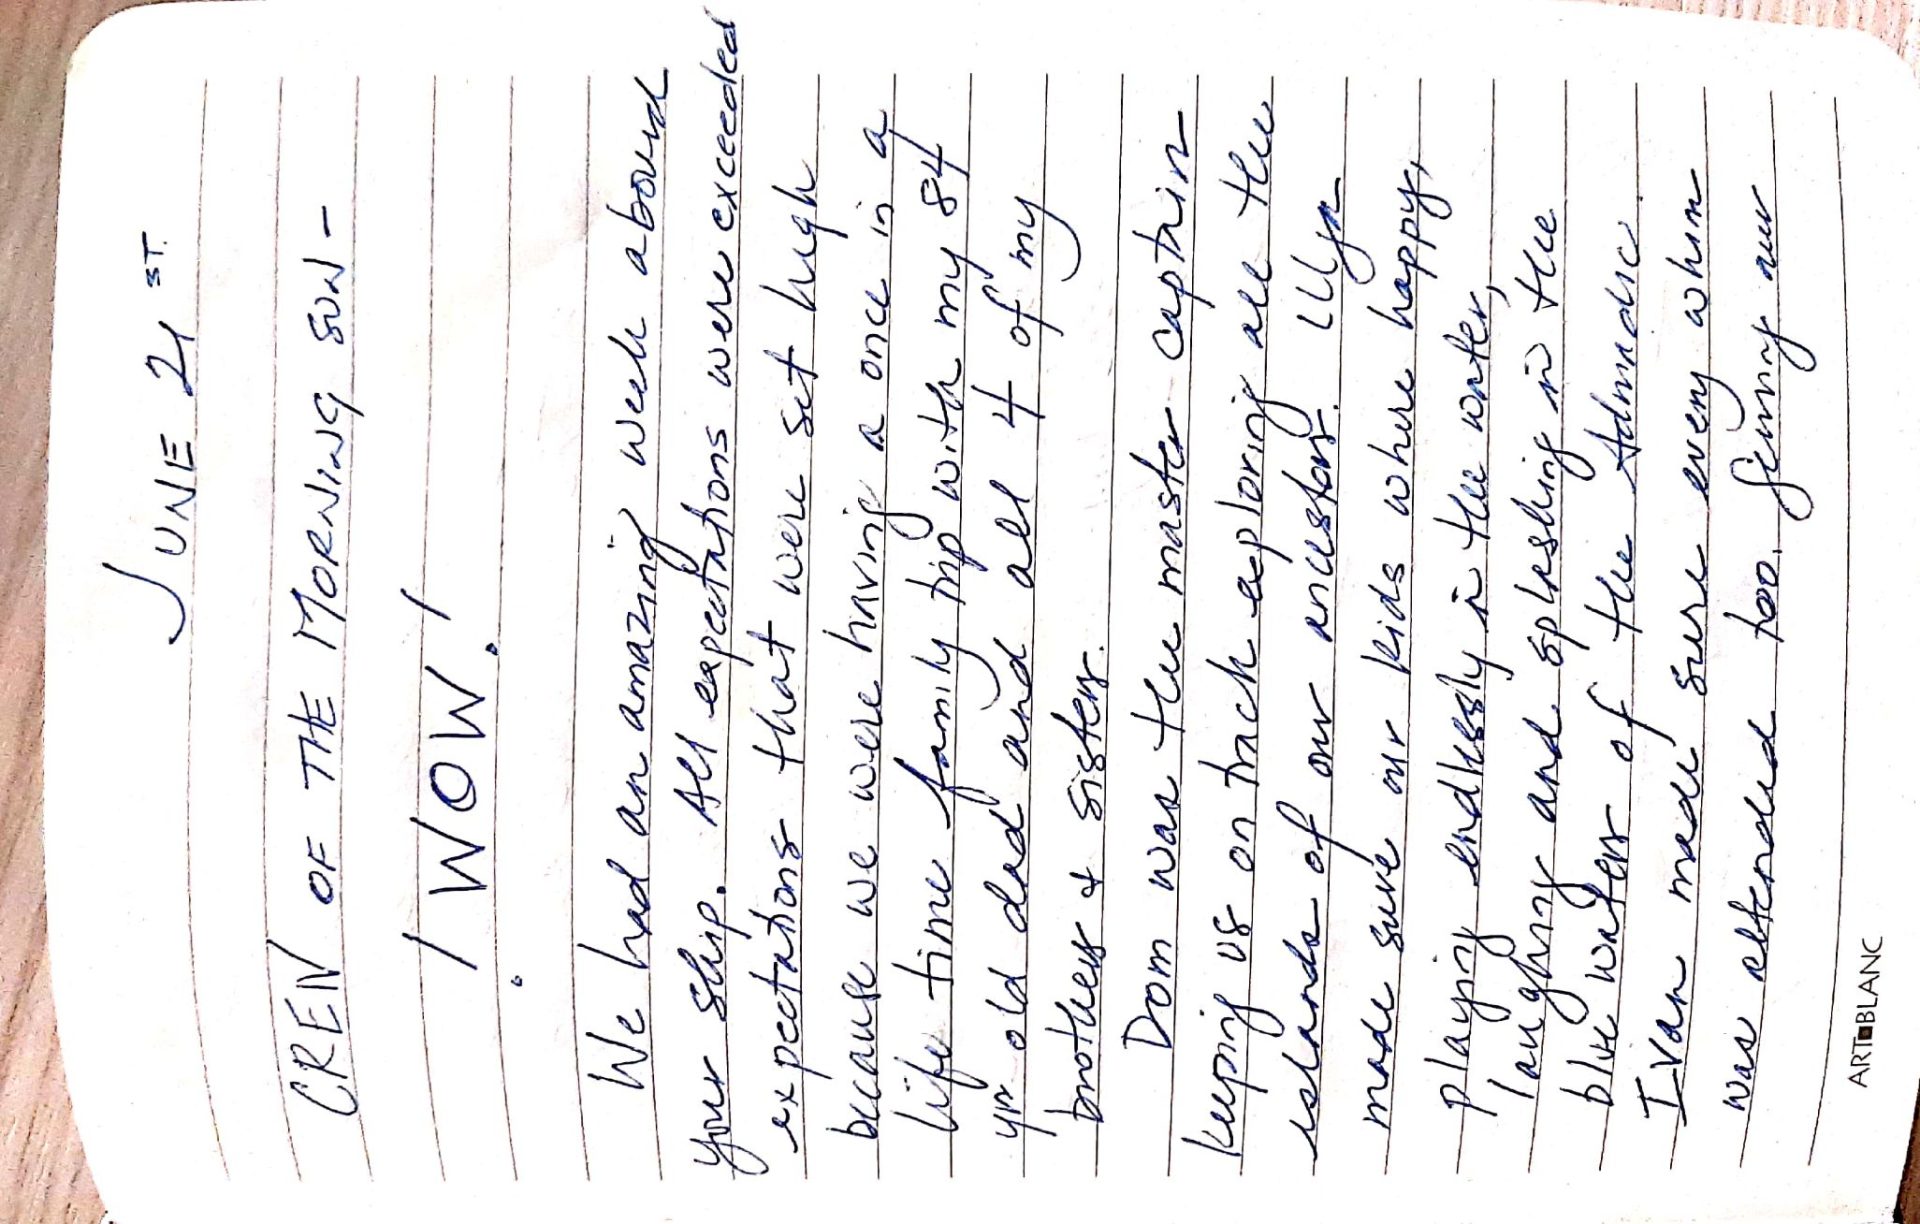 JUNE 21ST.
CREW OF THE MORNING SUN -
¡WOW!
We had an amazing week abourd
your ship. All expectations were exceeded
expectations that were set high
because we were having a once in a
life time family trip with my 84
yr old dad and all 4 of my
brothers & sisters.
Dom was the master captain
keeping us on track exploring all the
islands of our ancestors. Illya
made sure our kids where happy,
playing endlessly in the water,
laughing and splashing in the
blue waters of the Adriadic.
Ivan made sure every whim
was attended too.
ART BLANC